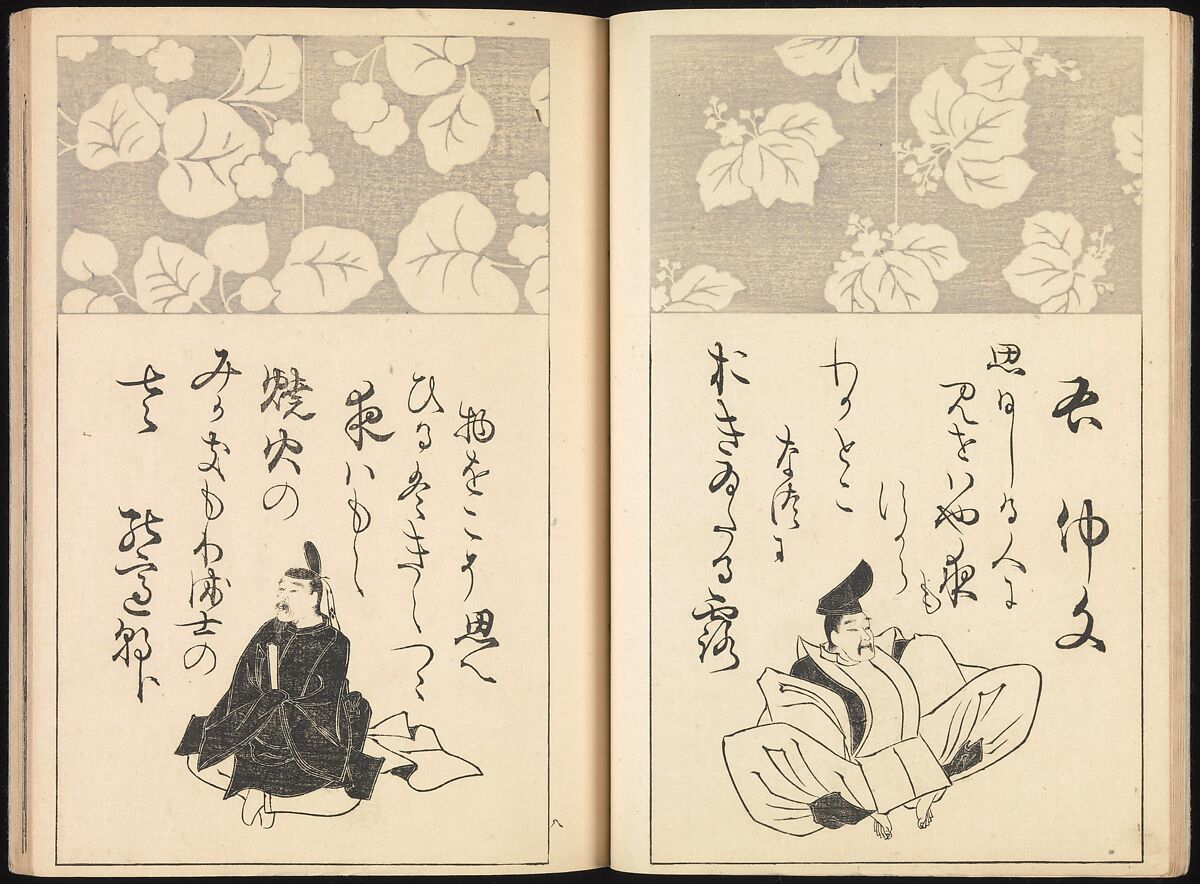 右 仲文
思ひしる人に
見せはや夜も
すから
わかとこ
なつに
おきゐたる露
左 能宣朝臣
みかきもり衛士の
焼火の
夜ハもえ
ひるハきえつゝ
物をこそ思へ